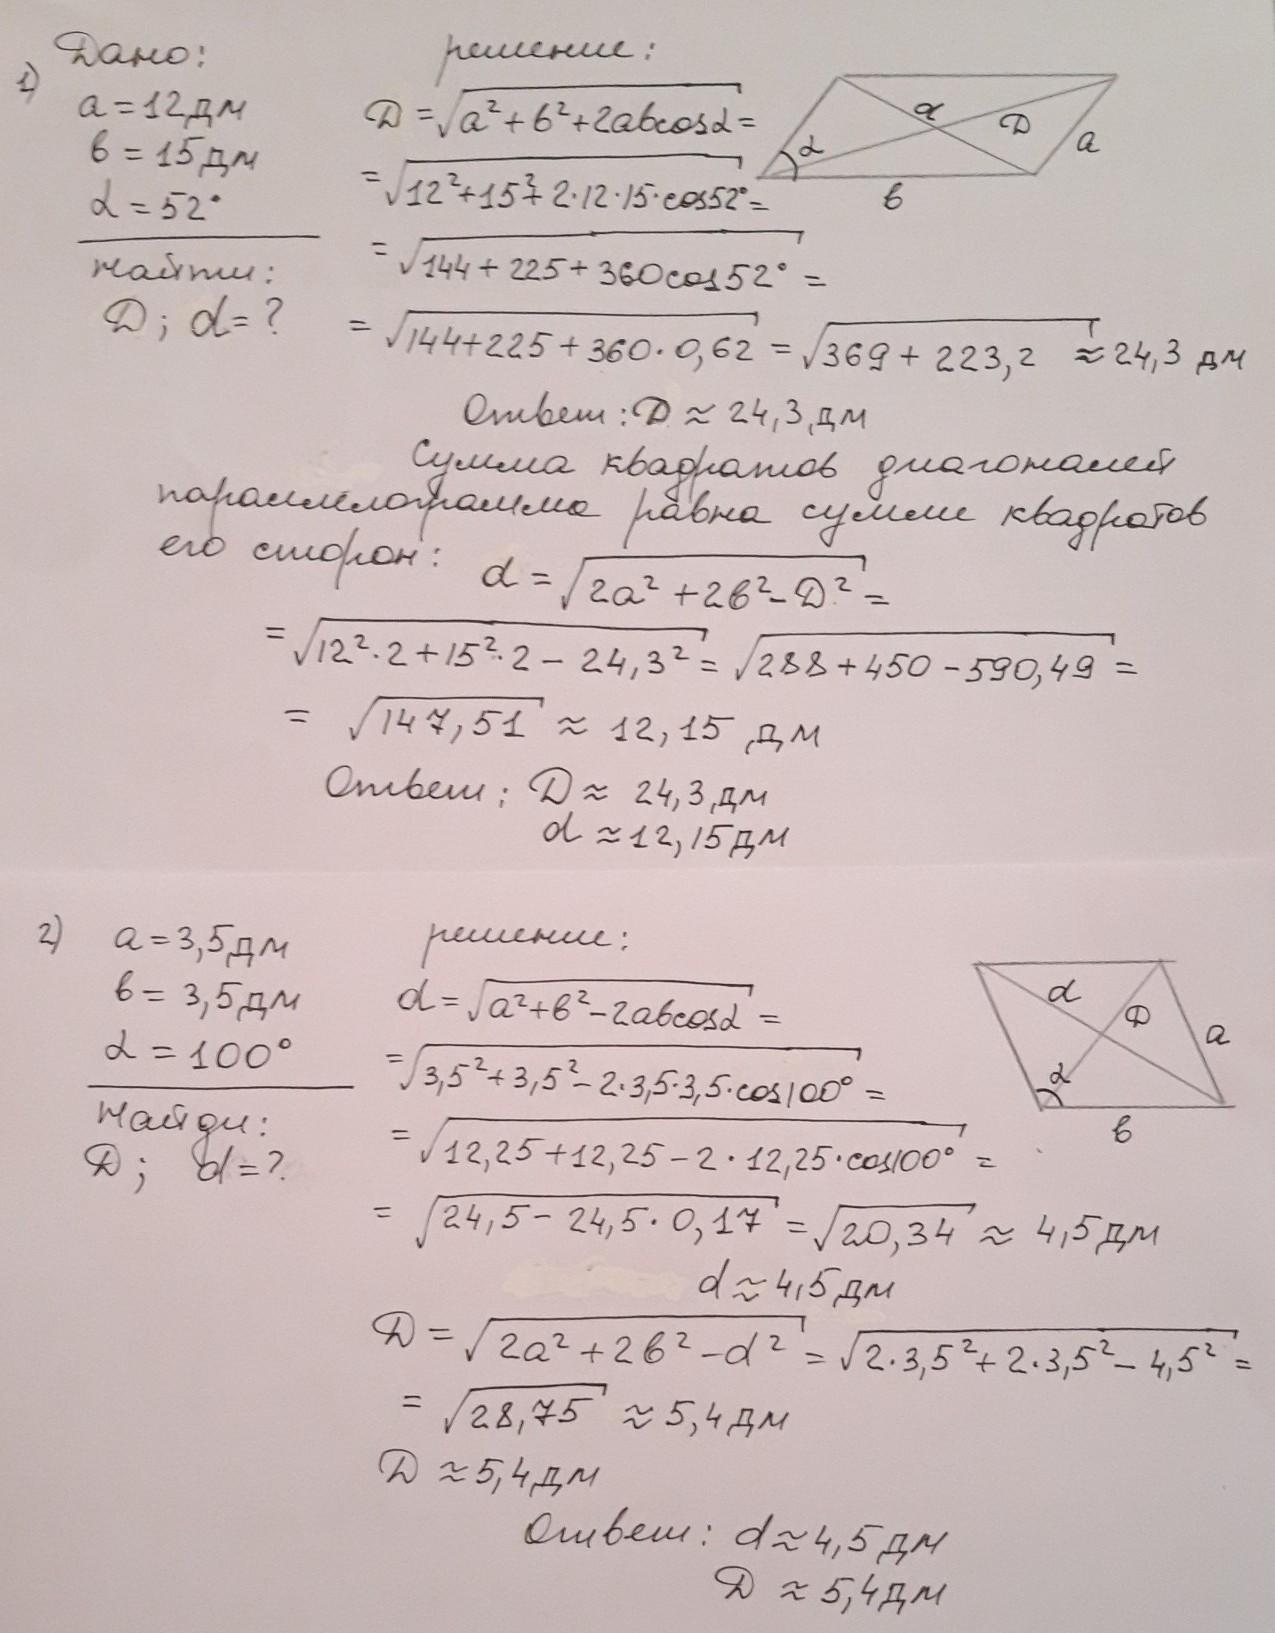 1) Дано:
a = 12 дм
в = 15 дм
α = 52°
Найти:
D; d = ?
решение:
D = √(a² + в² + 2aв cos α) =
= √(12² + 15² + 2·12·15·cos 52°) =
= √(144 + 225 + 360 cos 52°) =
= √(144 + 225 + 360·0,62) = √(369 + 223,2) ≈ 24,3 дм
d
D
a
α
в
Ответ: D ≈ 24,3 дм
Сумма квадратов диагоналей
параллелограмма равна сумме квадратов
его сторон: d = √(2a² + 2в² - D²) =
= √(12²·2 + 15²·2 - 24,3²) = √(288 + 450 - 590,49) =
= √(147,51) ≈ 12,15 дм
Ответ: D ≈ 24,3 дм
d ≈ 12,15 дм
2) a = 3,5 дм
в = 3,5 дм
α = 100°
Найди:
D; d = ?
решение:
d = √(a² + в² - 2aв cos α) =
= √(3,5² + 3,5² - 2·3,5·3,5·cos 100°) =
= √(12,25 + 12,25 - 2·12,25·cos 100°) =
= √(24,5 - 24,5·0,17) = √(20,34) ≈ 4,5 дм
d
D
a
α
в
d ≈ 4,5 дм
D = √(2a² + 2в² - d²) = √(2·3,5² + 2·3,5² - 4,5²) =
= √(28,75) ≈ 5,4 дм
D ≈ 5,4 дм
Ответ: d ≈ 4,5 дм
D ≈ 5,4 дм